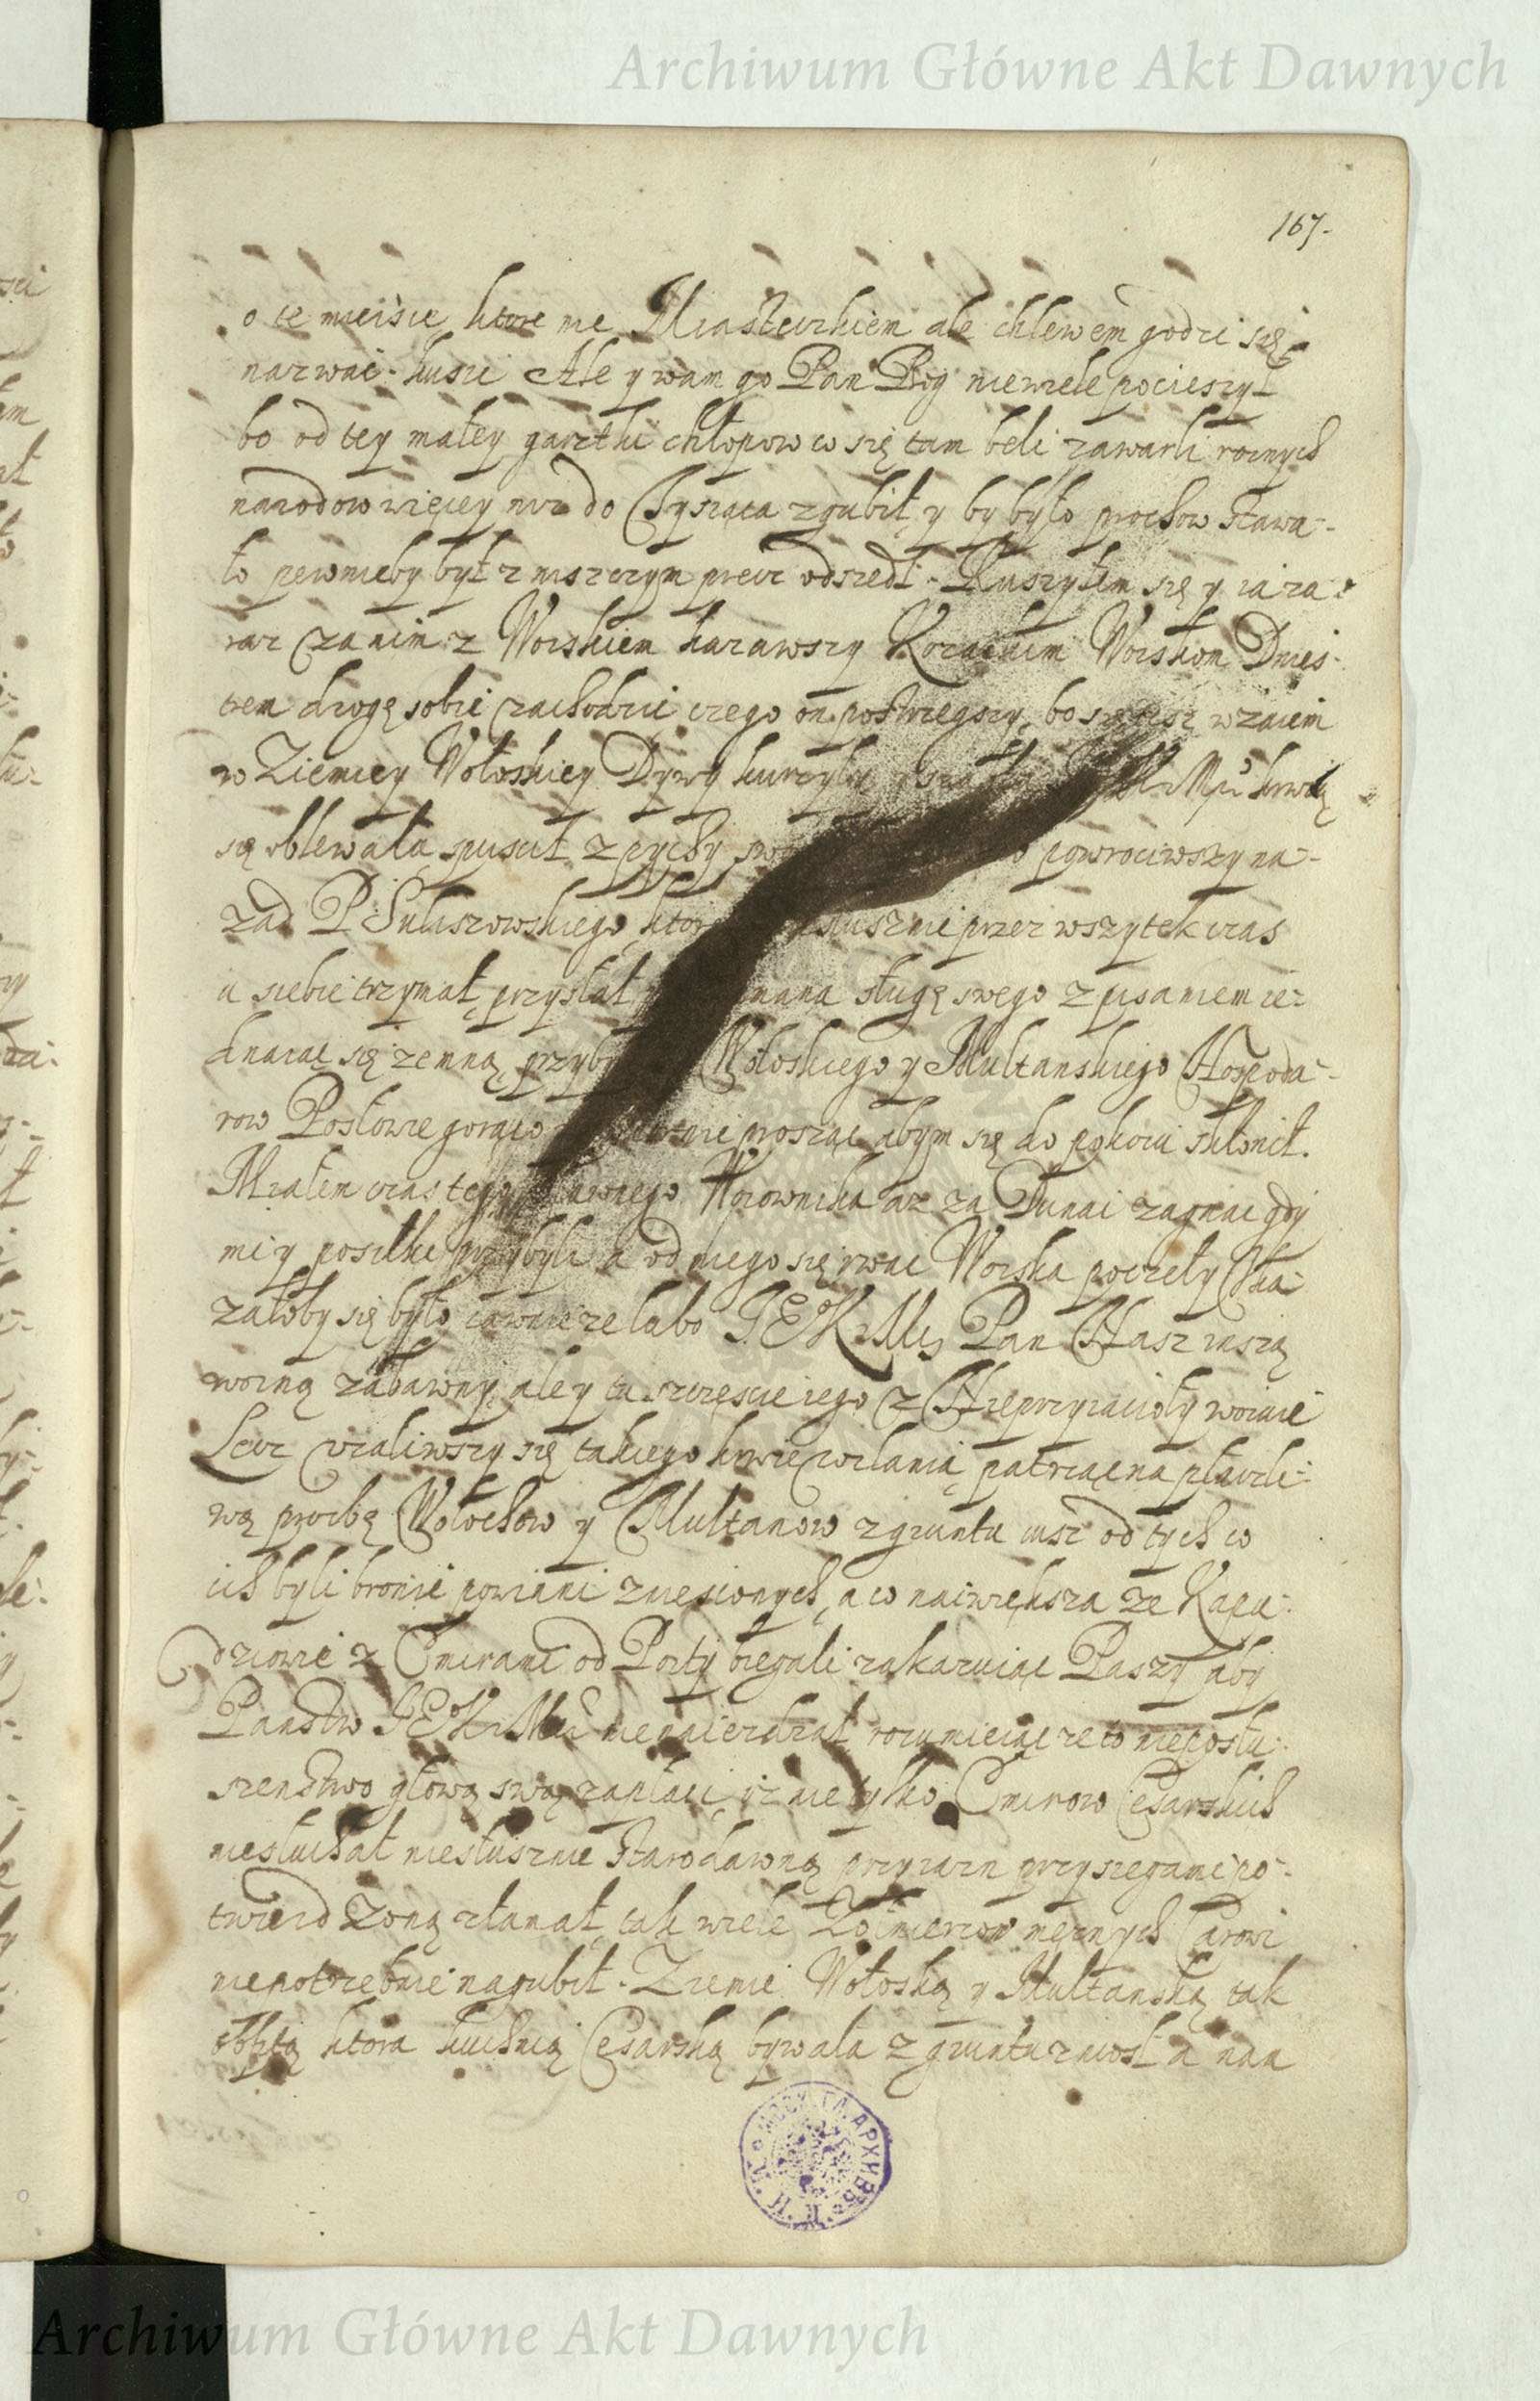 Archiwum Główne Akt Dawnych
167.
o te mieisce ktore nie Miasteczkiem ale chlewem godzi się
nazwać kusić Ale y wam go Pan Bóg niewiele pocieszył
bo od tey małey garztki chłopow co się tam beli zawarli roznych
narodow więcey niz do Tysiąca zgubił, y by było prochow stawa-
ło pewnieby był z niszczym precz odszedł. Ruszyłem się y ia za-
raz za nim z Woiskiem kazawszy Kozackim Woiskom Dnies-
trem drogę sobie zachodzić czego on postrzegszy, bo się wzaiem
w Ziemiey Wołoskiey Dymy kurzyły krwią
się oblewała, spuscił z pychy powrociwszy na-
zad P. Suliszowskiego, niesłusznie przez wszytek czas
u siebie trzymał, przysłał sługę swego z pisaniem ie-
dnaiąc się zemną, Wołoskiego y Multanskiego Hospoda-
row Posłowie gorąco prosząc abym się do pokoiu skłonił.
Miałem czas tego Woiownika az za Dunai zagnać gdy
mi y posiłki przybyli a od niego się rwać Woiska poczęły Oka-
załoby się było iawnie ze lubo J.E.K. Mć Pan Nasz inszą
woiną zabawny, ale y tu szczęscie iego z Nieprzyiacioły woiuie
Lecz uzaliwszy się takiego krwie wylania, patrząc na płaczli-
wą prozbę Wołochow y Multanow z gruntu iusz od tych co
ich byli bronić powinni zniesionych, a co naiwiększa ze Kapu-
dziowie z Emirami od Porty biegali zakazuiąc Paszy aby
Panstw J.E.K. Mći nienaiezdzał, rozumieiąc ze to nieposłu-
szenstwo głową swą zapłaci, iz nie tylko Emirow Cesarskich
niesłuchał niesłusznie starodawną przyiazn przysięgami po-
twierdzoną złamał, tak wiele Zołnierzow męznych Carowi
niepotrzebnie nagubił. Ziemie Wołoską y Multanską tak
obfitą ktora kuchnią Cesarską bywała z gruntu zniosł a nan
Archiwum Główne Akt Dawnych